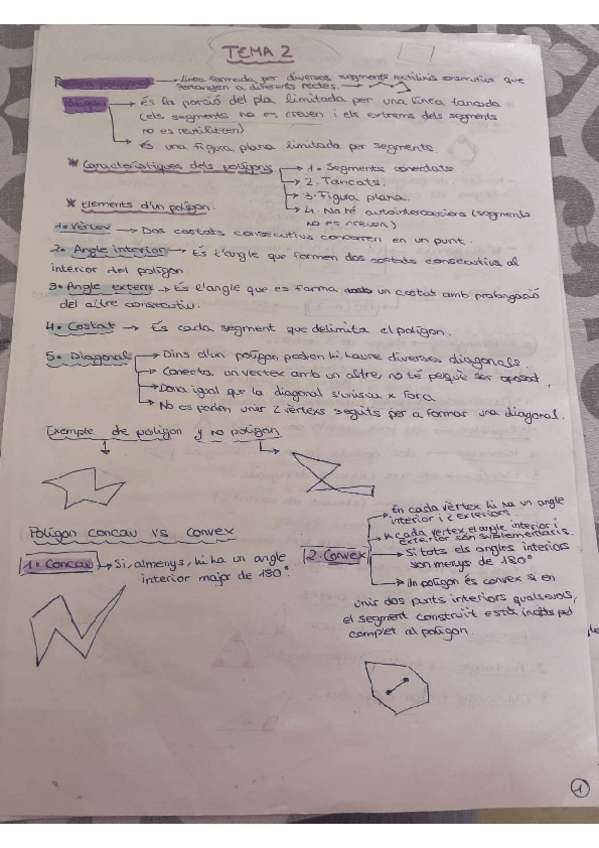 TEMA 2
→ Línea formada per diversos segments rectilinis consecutius que
Pertanyen a diferents rectes.
Polígon → és la porció del pla limitada per una línea tancada
(els segments no es creuen i els extrems dels segments
no es
→ és una figura plana limitada per segments.
* Característiques dels polígons → 1. Segments conectats
→ 2. Tancats.
→ 3. Figura plana.
* Elements d'un polígon. → 4. No té autointerseccions (segments
no es creuen)
1. Vèrtex → Dos costats consecutius concorren en un punt.
2. Angle interior → És l'angle que formen dos costats consecutius al
interior del polígon
3. Angle extern → És l'angle que es forma un costat amb prolongació
del altre consecutiu.
4. Costat → És cada segment que delimita el polígon.
5. Diagonal → Dins d'un polígon poden hi haure diverses diagonals.
→ Conecta un vertex amb un altre, no té perquè ser oposat.
→ Dona igual que la diagonal s'unisca x fora
→ No es poden unir 2 vèrtexs seguits per a formar una diagonal.
Exemple de polígon y no polígon
Polígon concau vs convex
1. Concau → Si, almenys, hi ha un angle
interior major de 180º.
2. Convex → En cada vèrtex hi ha un angle
interior i 2 exteriors
→ A cada vertex el angle interior i
exterior són suplementaris.
→ Si tots els angles interiors
son menys de 180º
→ Un polígon és convex si en
unir dos punts interiors qualsevols,
el segment construit està inclòs pel
complet al polígon.
1